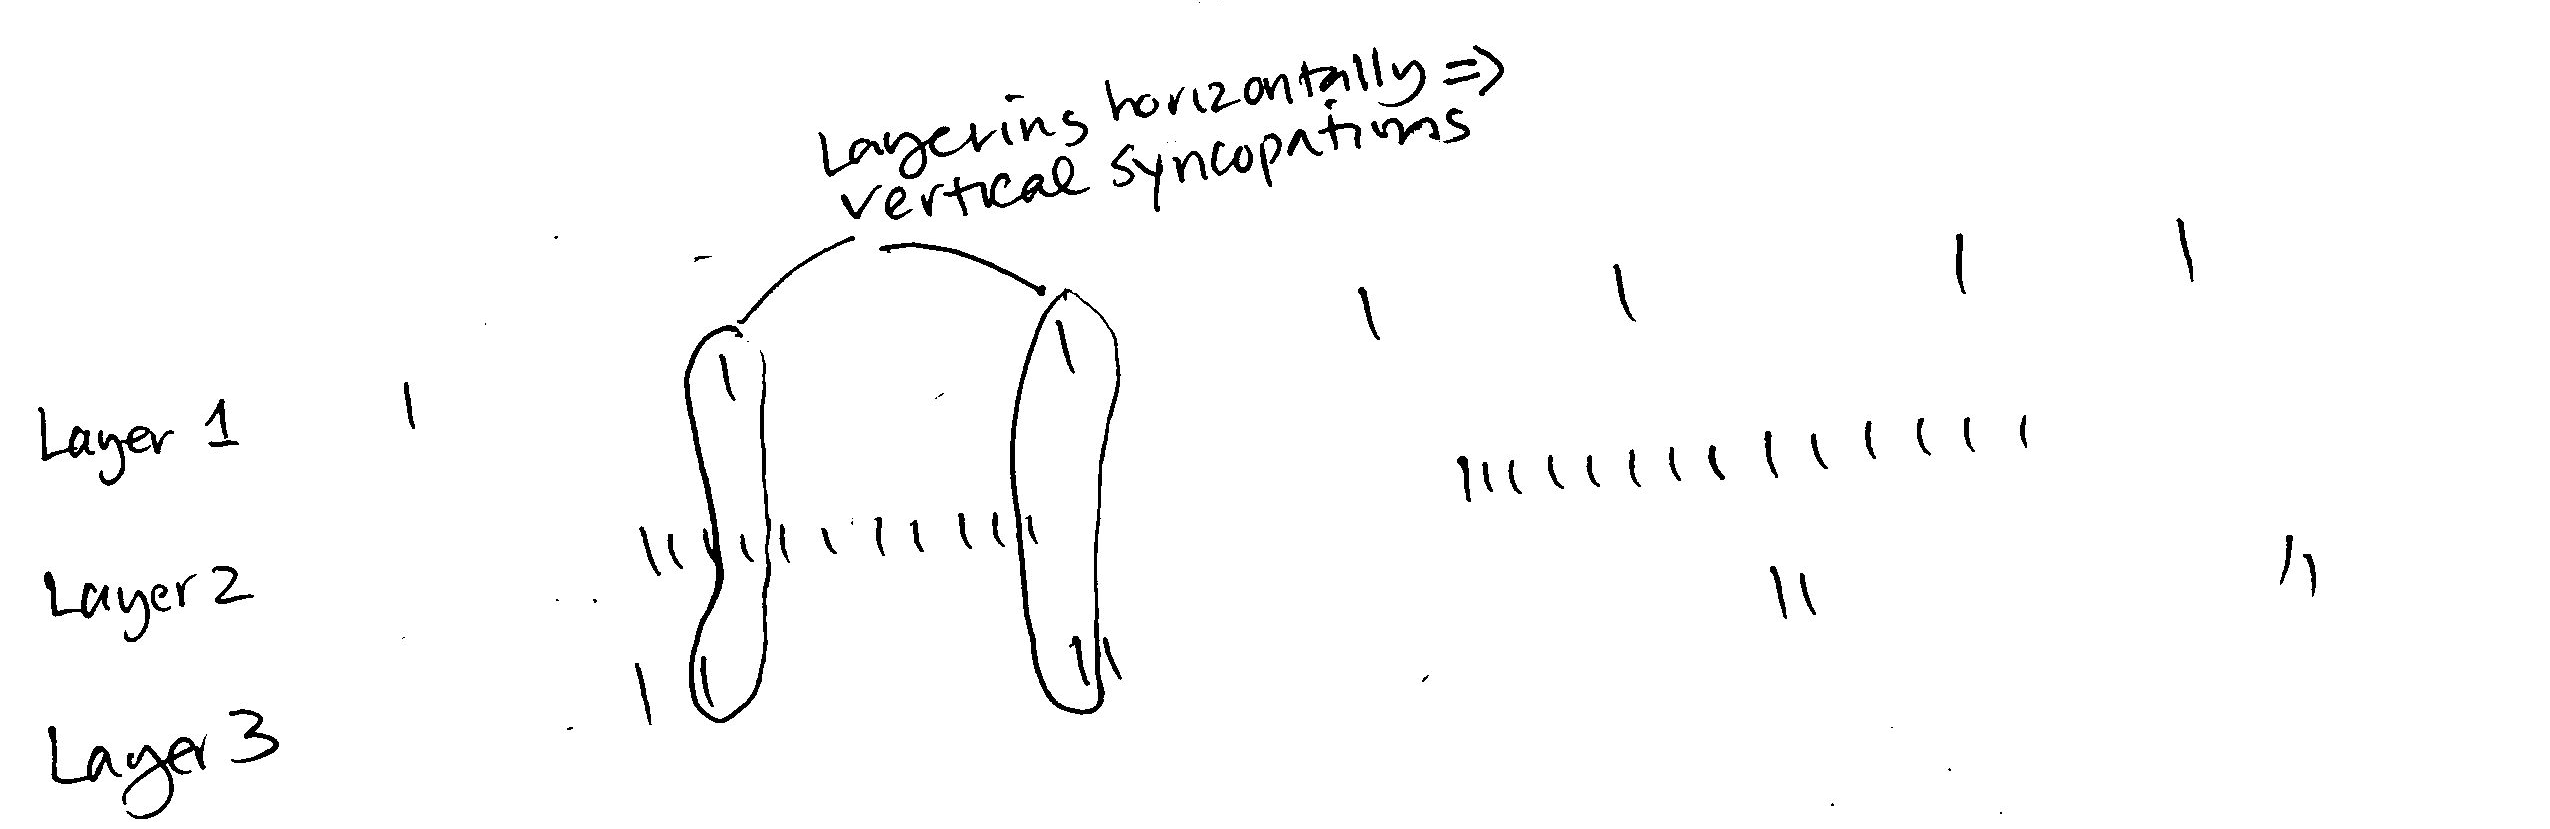 Layering horizontally =>
vertical syncopations
Layer 1
Layer 2
Layer 3